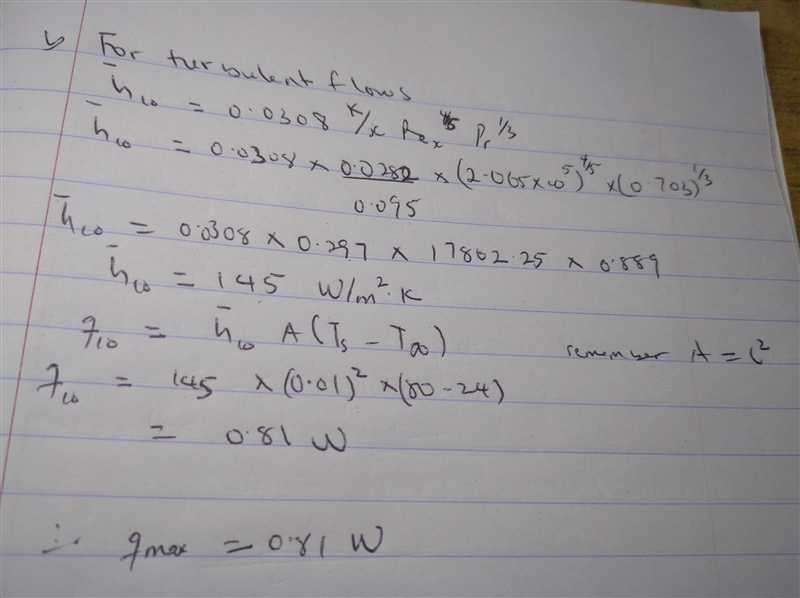 ↳ For turbulent flows
h̄₁₀ = 0.0308 K/x Reₓ^4/5 Pr^1/3
h̄₁₀ = 0.0308 × 0.0282/0.095 × (2.065×10⁵)^4/5 × (0.703)^1/3
h̄₁₀ = 0.0308 × 0.297 × 17802.25 × 0.889
h̄₁₀ = 145 W/m²·K
q₁₀ = h̄₁₀ A(Ts − T∞) remember A = L²
q₁₀ = 145 × (0.01)² × (80−24)
= 0.81 W
∴ qmax = 0.81 W